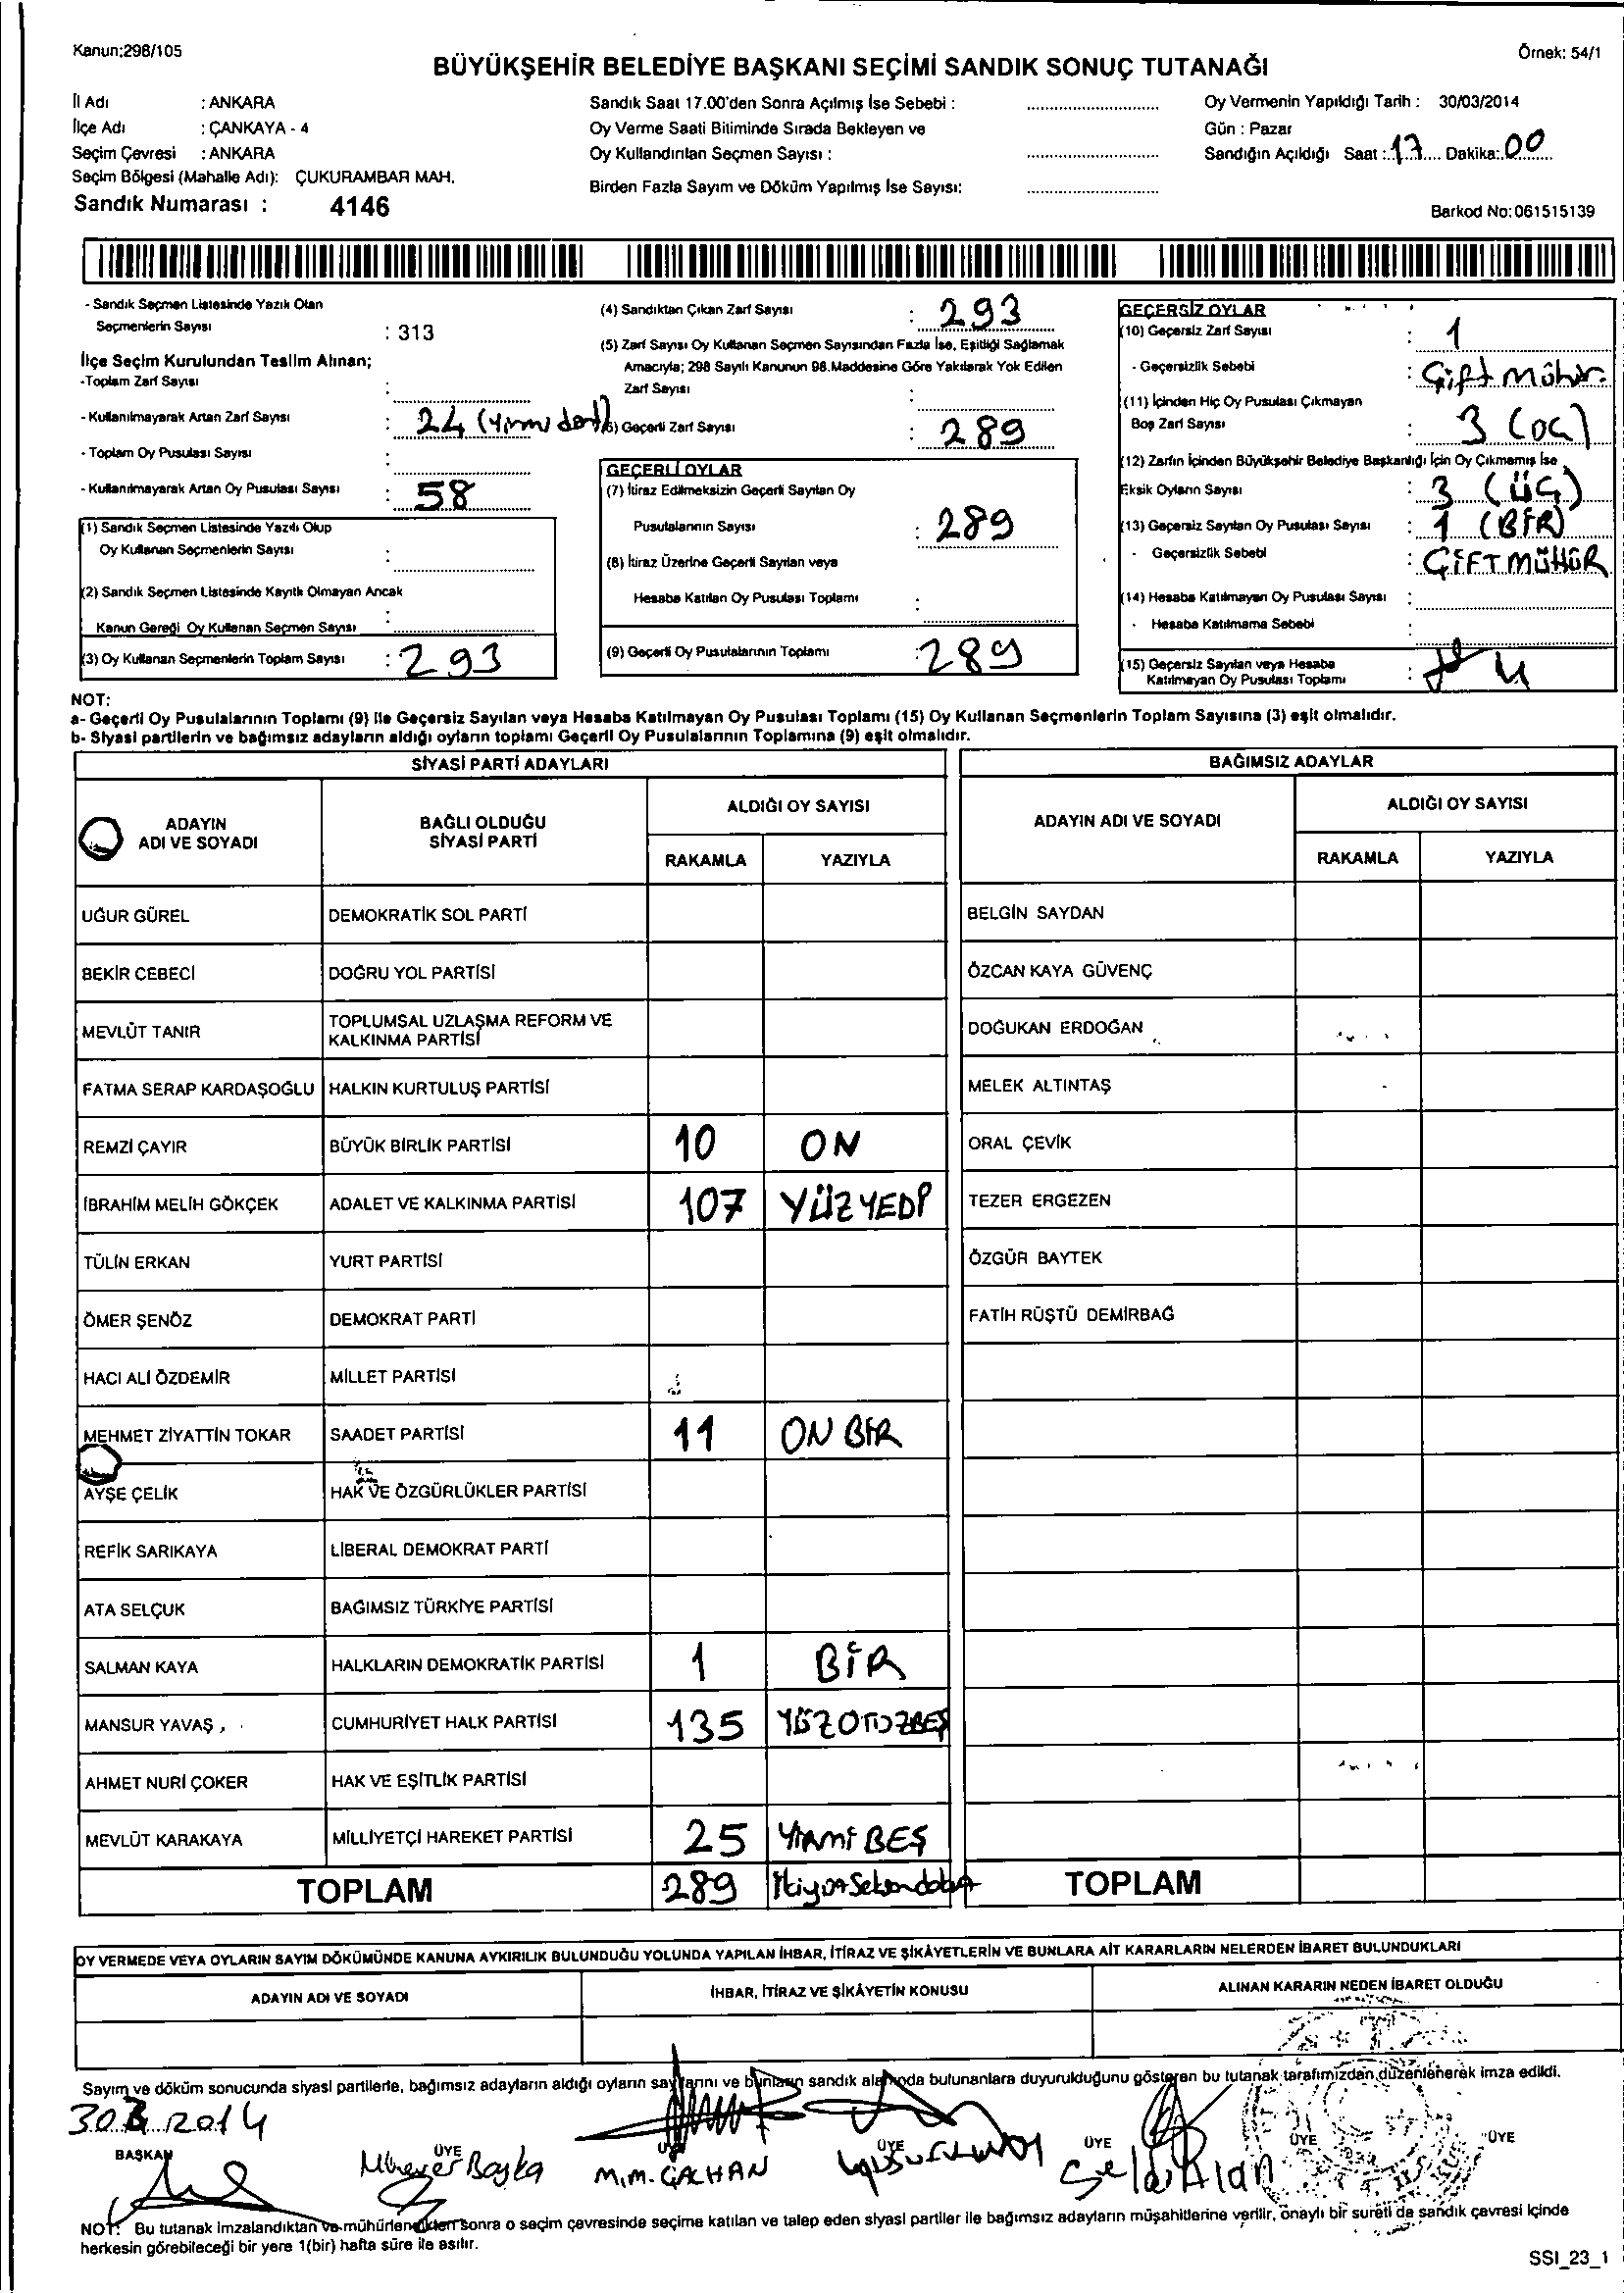 Kanun:298/105
Örnek: 54/1
BÜYÜKŞEHİR BELEDİYE BAŞKANI SEÇİMİ SANDIK SONUÇ TUTANAĞI
İl Adı : ANKARA
İlçe Adı : ÇANKAYA - 4
Seçim Çevresi : ANKARA
Seçim Bölgesi (Mahalle Adı): ÇUKURAMBAR MAH.
Sandık Numarası : 4146
Sandık Saat 17.00'den Sonra Açılmış İse Sebebi :
Oy Verme Saati Bitiminde Sırada Bekleyen ve
Oy Kullandırılan Seçmen Sayısı :
Birden Fazla Sayım ve Döküm Yapılmış İse Sayısı:
Oy Vermenin Yapıldığı Tarih : 30/03/2014
Gün : Pazar
Sandığın Açıldığı Saat : 17 Dakika: 00
Barkod No:061515139
- Sandık Seçmen Listesinde Yazılı Olan
Seçmenlerin Sayısı : 313
İlçe Seçim Kurulundan Teslim Alınan;
-Toplam Zarf Sayısı :
- Kullanılmayarak Artan Zarf Sayısı : 24 (yirmi dört)
- Toplam Oy Pusulası Sayısı :
- Kullanılmayarak Artan Oy Pusulası Sayısı : 58
(1) Sandık Seçmen Listesinde Yazılı Olup
Oy Kullanan Seçmenlerin Sayısı :
(2) Sandık Seçmen Listesinde Kayıtlı Olmayan Ancak
Kanun Gereği Oy Kullanan Seçmen Sayısı :
(3) Oy Kullanan Seçmenlerin Toplam Sayısı : 293
(4) Sandıktan Çıkan Zarf Sayısı : 293
(5) Zarf Sayısı Oy Kullanan Seçmen Sayısından Fazla İse, Eşitliği Sağlamak
Amacıyla; 298 Sayılı Kanunun 98.Maddesine Göre Yakılarak Yok Edilen
Zarf Sayısı :
(6) Geçerli Zarf Sayısı : 289
GEÇERLİ OYLAR
(7) İtiraz Edilmeksizin Geçerli Sayılan Oy
Pusulalarının Sayısı : 289
(8) İtiraz Üzerine Geçerli Sayılan veya
Hesaba Katılan Oy Pusulası Toplamı :
(9) Geçerli Oy Pusulalarının Toplamı : 289
GEÇERSİZ OYLAR
(10) Geçersiz Zarf Sayısı : 1
- Geçersizlik Sebebi : Çift mühür.
(11) İçinden Hiç Oy Pusulası Çıkmayan
Boş Zarf Sayısı : 3 (üç)
(12) Zarfın İçinden Büyükşehir Belediye Başkanlığı İçin Oy Çıkmamış İse
Eksik Oyların Sayısı : 3 (ÜÇ)
(13) Geçersiz Sayılan Oy Pusulası Sayısı : 1 (BİR)
- Geçersizlik Sebebi : ÇİFT MÜHÜR
(14) Hesaba Katılmayan Oy Pusulası Sayısı :
- Hesaba Katılmama Sebebi :
(15) Geçersiz Sayılan veya Hesaba
Katılmayan Oy Pusulası Toplamı : 4
NOT:
a- Geçerli Oy Pusulalarının Toplamı (9) ile Geçersiz Sayılan veya Hesaba Katılmayan Oy Pusulası Toplamı (15) Oy Kullanan Seçmenlerin Toplam Sayısına (3) eşit olmalıdır.
b- Siyasi partilerin ve bağımsız adayların aldığı oyların toplamı Geçerli Oy Pusulalarının Toplamına (9) eşit olmalıdır.
SİYASİ PARTİ ADAYLARI
ADAYIN ADI VE SOYADI
BAĞLI OLDUĞU SİYASİ PARTİ
ALDIĞI OY SAYISI
RAKAMLA YAZIYLA
UĞUR GÜREL DEMOKRATİK SOL PARTİ
BEKİR CEBECİ DOĞRU YOL PARTİSİ
MEVLÜT TANIR TOPLUMSAL UZLAŞMA REFORM VE
KALKINMA PARTİSİ
FATMA SERAP KARDAŞOĞLU HALKIN KURTULUŞ PARTİSİ
REMZİ ÇAYIR BÜYÜK BİRLİK PARTİSİ 10 ON
İBRAHİM MELİH GÖKÇEK ADALET VE KALKINMA PARTİSİ 107 YÜZYEDİ
TÜLİN ERKAN YURT PARTİSİ
ÖMER ŞENÖZ DEMOKRAT PARTİ
HACI ALİ ÖZDEMİR MİLLET PARTİSİ
MEHMET ZİYATTİN TOKAR SAADET PARTİSİ 11 ON BİR
AYŞE ÇELİK HAK VE ÖZGÜRLÜKLER PARTİSİ
REFİK SARIKAYA LİBERAL DEMOKRAT PARTİ
ATA SELÇUK BAĞIMSIZ TÜRKİYE PARTİSİ
SALMAN KAYA HALKLARIN DEMOKRATİK PARTİSİ 1 BİR
MANSUR YAVAŞ CUMHURİYET HALK PARTİSİ 135 YÜZOTUZBEŞ
AHMET NURİ ÇOKER HAK VE EŞİTLİK PARTİSİ
MEVLÜT KARAKAYA MİLLİYETÇİ HAREKET PARTİSİ 25 YİRMİ BEŞ
TOPLAM 289 İkiyüzSeksendokuz
BAĞIMSIZ ADAYLAR
ADAYIN ADI VE SOYADI
ALDIĞI OY SAYISI
RAKAMLA YAZIYLA
BELGİN SAYDAN
ÖZCAN KAYA GÜVENÇ
DOĞUKAN ERDOĞAN
MELEK ALTINTAŞ
ORAL ÇEVİK
TEZER ERGEZEN
ÖZGÜR BAYTEK
FATİH RÜŞTÜ DEMİRBAĞ
TOPLAM
OY VERMEDE VEYA OYLARIN SAYIM DÖKÜMÜNDE KANUNA AYKIRILIK BULUNDUĞU YOLUNDA YAPILAN İHBAR, İTİRAZ VE ŞİKÂYETLERİN VE BUNLARA AİT KARARLARIN NELERDEN İBARET BULUNDUKLARI
ADAYIN ADI VE SOYADI
İHBAR, İTİRAZ VE ŞİKÂYETİN KONUSU
ALINAN KARARIN NEDEN İBARET OLDUĞU
Sayım ve döküm sonucunda siyasi partilerle, bağımsız adayların aldığı oyların sayılarını ve bunların sandık alanında bulunanlara duyurulduğunu gösteren bu tutanak tarafımızdan düzenlenerek imza edildi.
30.3.2014
BAŞKAN ÜYE ÜYE ÜYE ÜYE ÜYE ÜYE
M.M. GÖKHAN
NOT: Bu tutanak imzalandıktan ve mühürlendikten sonra o seçim çevresinde seçime katılan ve talep eden siyasi partiler ile bağımsız adayların müşahitlerine verilir, onaylı bir sureti de sandık çevresi içinde
herkesin görebileceği bir yere 1(bir) hafta süre ile asılır.
SSI_23_1